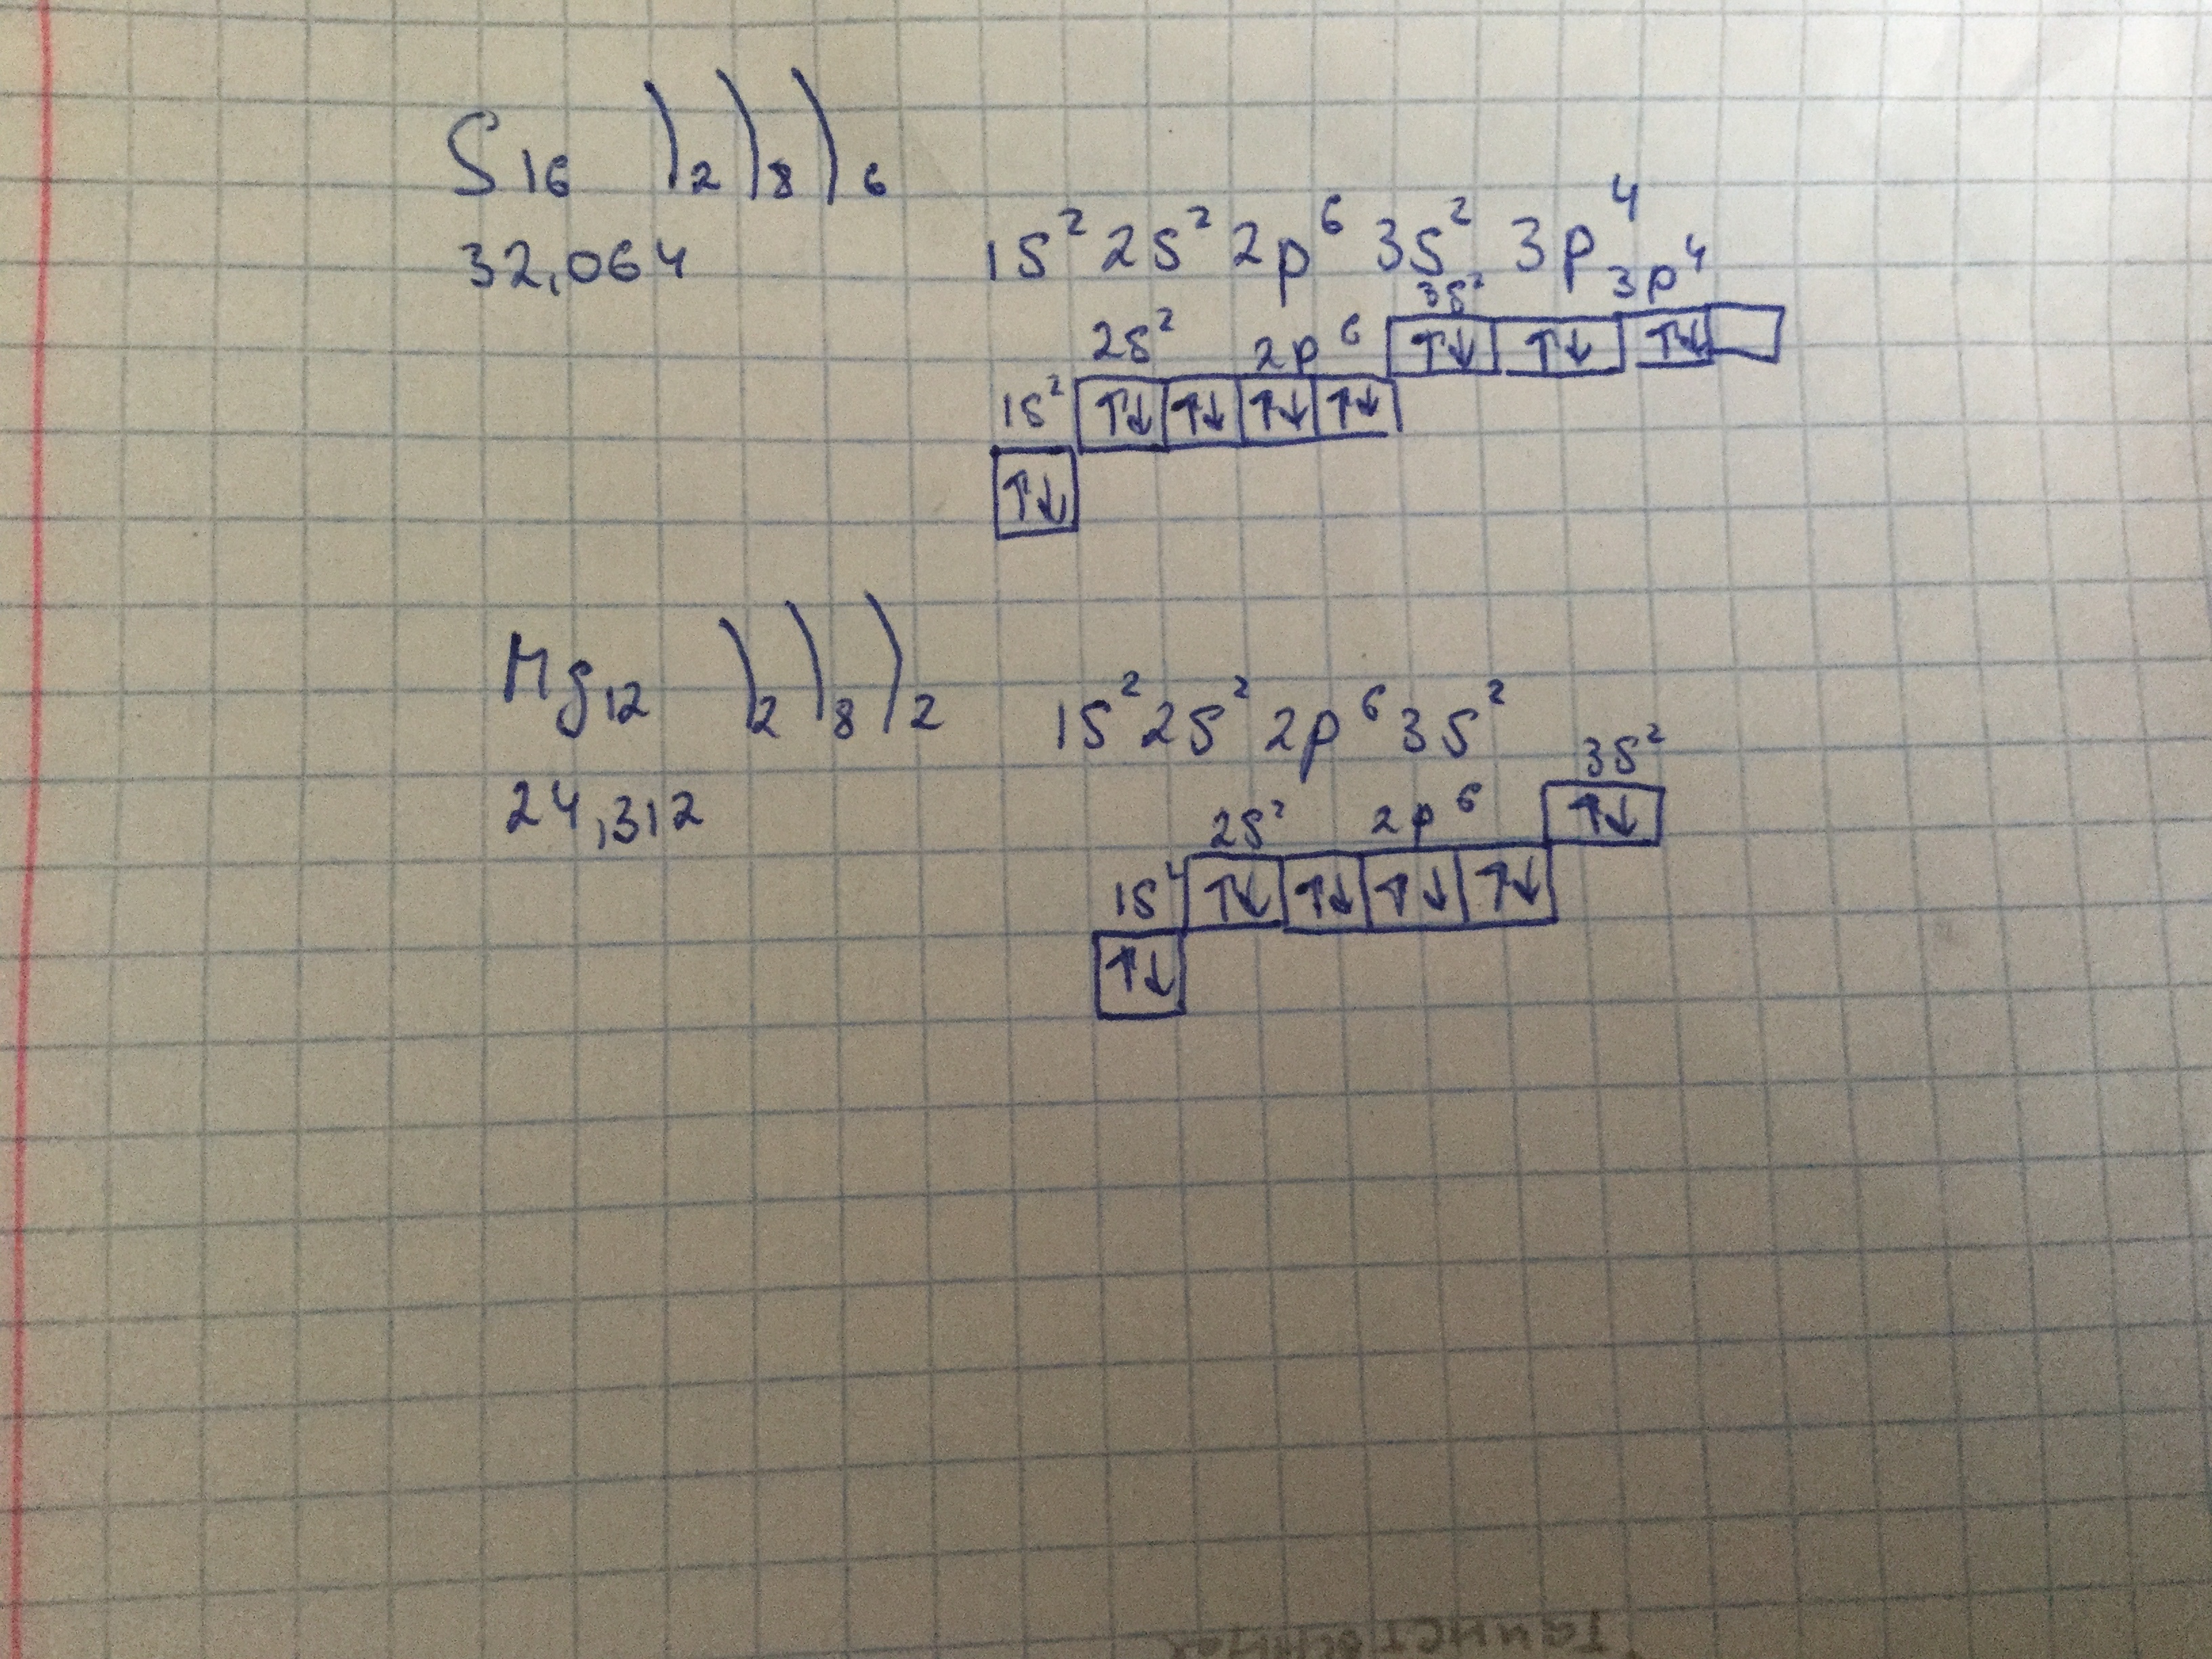 S 16 )2 )8 )6
32,064
1s² 2s² 2p⁶ 3s² 3p⁴
3s² 3p⁴
↑↓ ↑↓ ↑↓
2s² 2p⁶
↑↓ ↑↓ ↑↓ ↑↓
1s²
↑↓
Mg 12 )2 )8 )2
24,312
1s² 2s² 2p⁶ 3s²
3s²
↑↓
2s² 2p⁶
↑↓ ↑↓ ↑↓ ↑↓
1s
↑↓